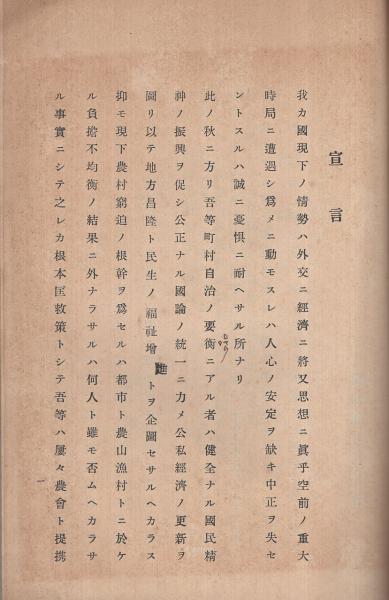 宣言
我カ國現下ノ情勢ハ外交ニ經濟ニ將又思想ニ眞乎空前ノ重大
時局ニ遭遇シ爲メニ動モスレハ人心ノ安定ヲ缺キ中正ヲ失セ
ントスルハ誠ニ憂惧ニ耐ヘサル所ナリ
此ノ秋ニ方リ吾等町村自治ノ要衡ニアル者ハ健全ナル國民精
神ノ振興ヲ促シ公正ナル國論ノ統一ニ力メ公私經濟ノ更新ヲ
圖リ以テ地方昌隆ト民生ノ福祉增進トヲ企圖セサルヘカラス
抑モ現下農村窮迫ノ根幹ヲ爲セルハ都市ト農山漁村トニ於ケ
ル負擔不均衡ノ結果ニ外ナラサルハ何人ト雖モ否ムヘカラサ
ル事實ニシテ之レカ根本匡救策トシテ吾等ハ屢々農會ト提携
一